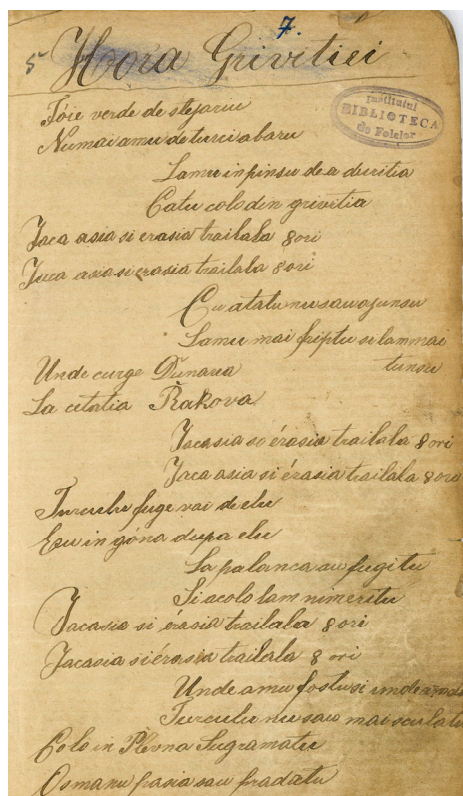 7.
5 Hora Grivitiei
Institutul
BIBLIOTECA
de Folclor
Fóie verde de stejariu
Numai amu de turci abaru
Lamu inpinsu dea deritia
Catu colo den grivitia
Iaca asia si erasia trailala 8 ori
Iaca asia si erasia trailala 8 ori
Cu atatu nu sau ajunsu
Lamu mai friptu si lam mai
tunsu
Unde curge Dunarea
La cetatia Rakova
Iacasia si érasia trailala 8 ori
Iaca asia si érasia trailala 8 ori
Turculu fuge vai de elu
Eu in góna dupa elu
La palanca au fugitu
Si acolo lam nimeritu
Iacasia si érasia trailala 8 ori
Iacasia si érasia trailala 8 ori
Unde amu fostu si unde
Turculu nu sau mai sculatu
Colo in Plevna Sugramatu
Osmanu pasia sau pradatu